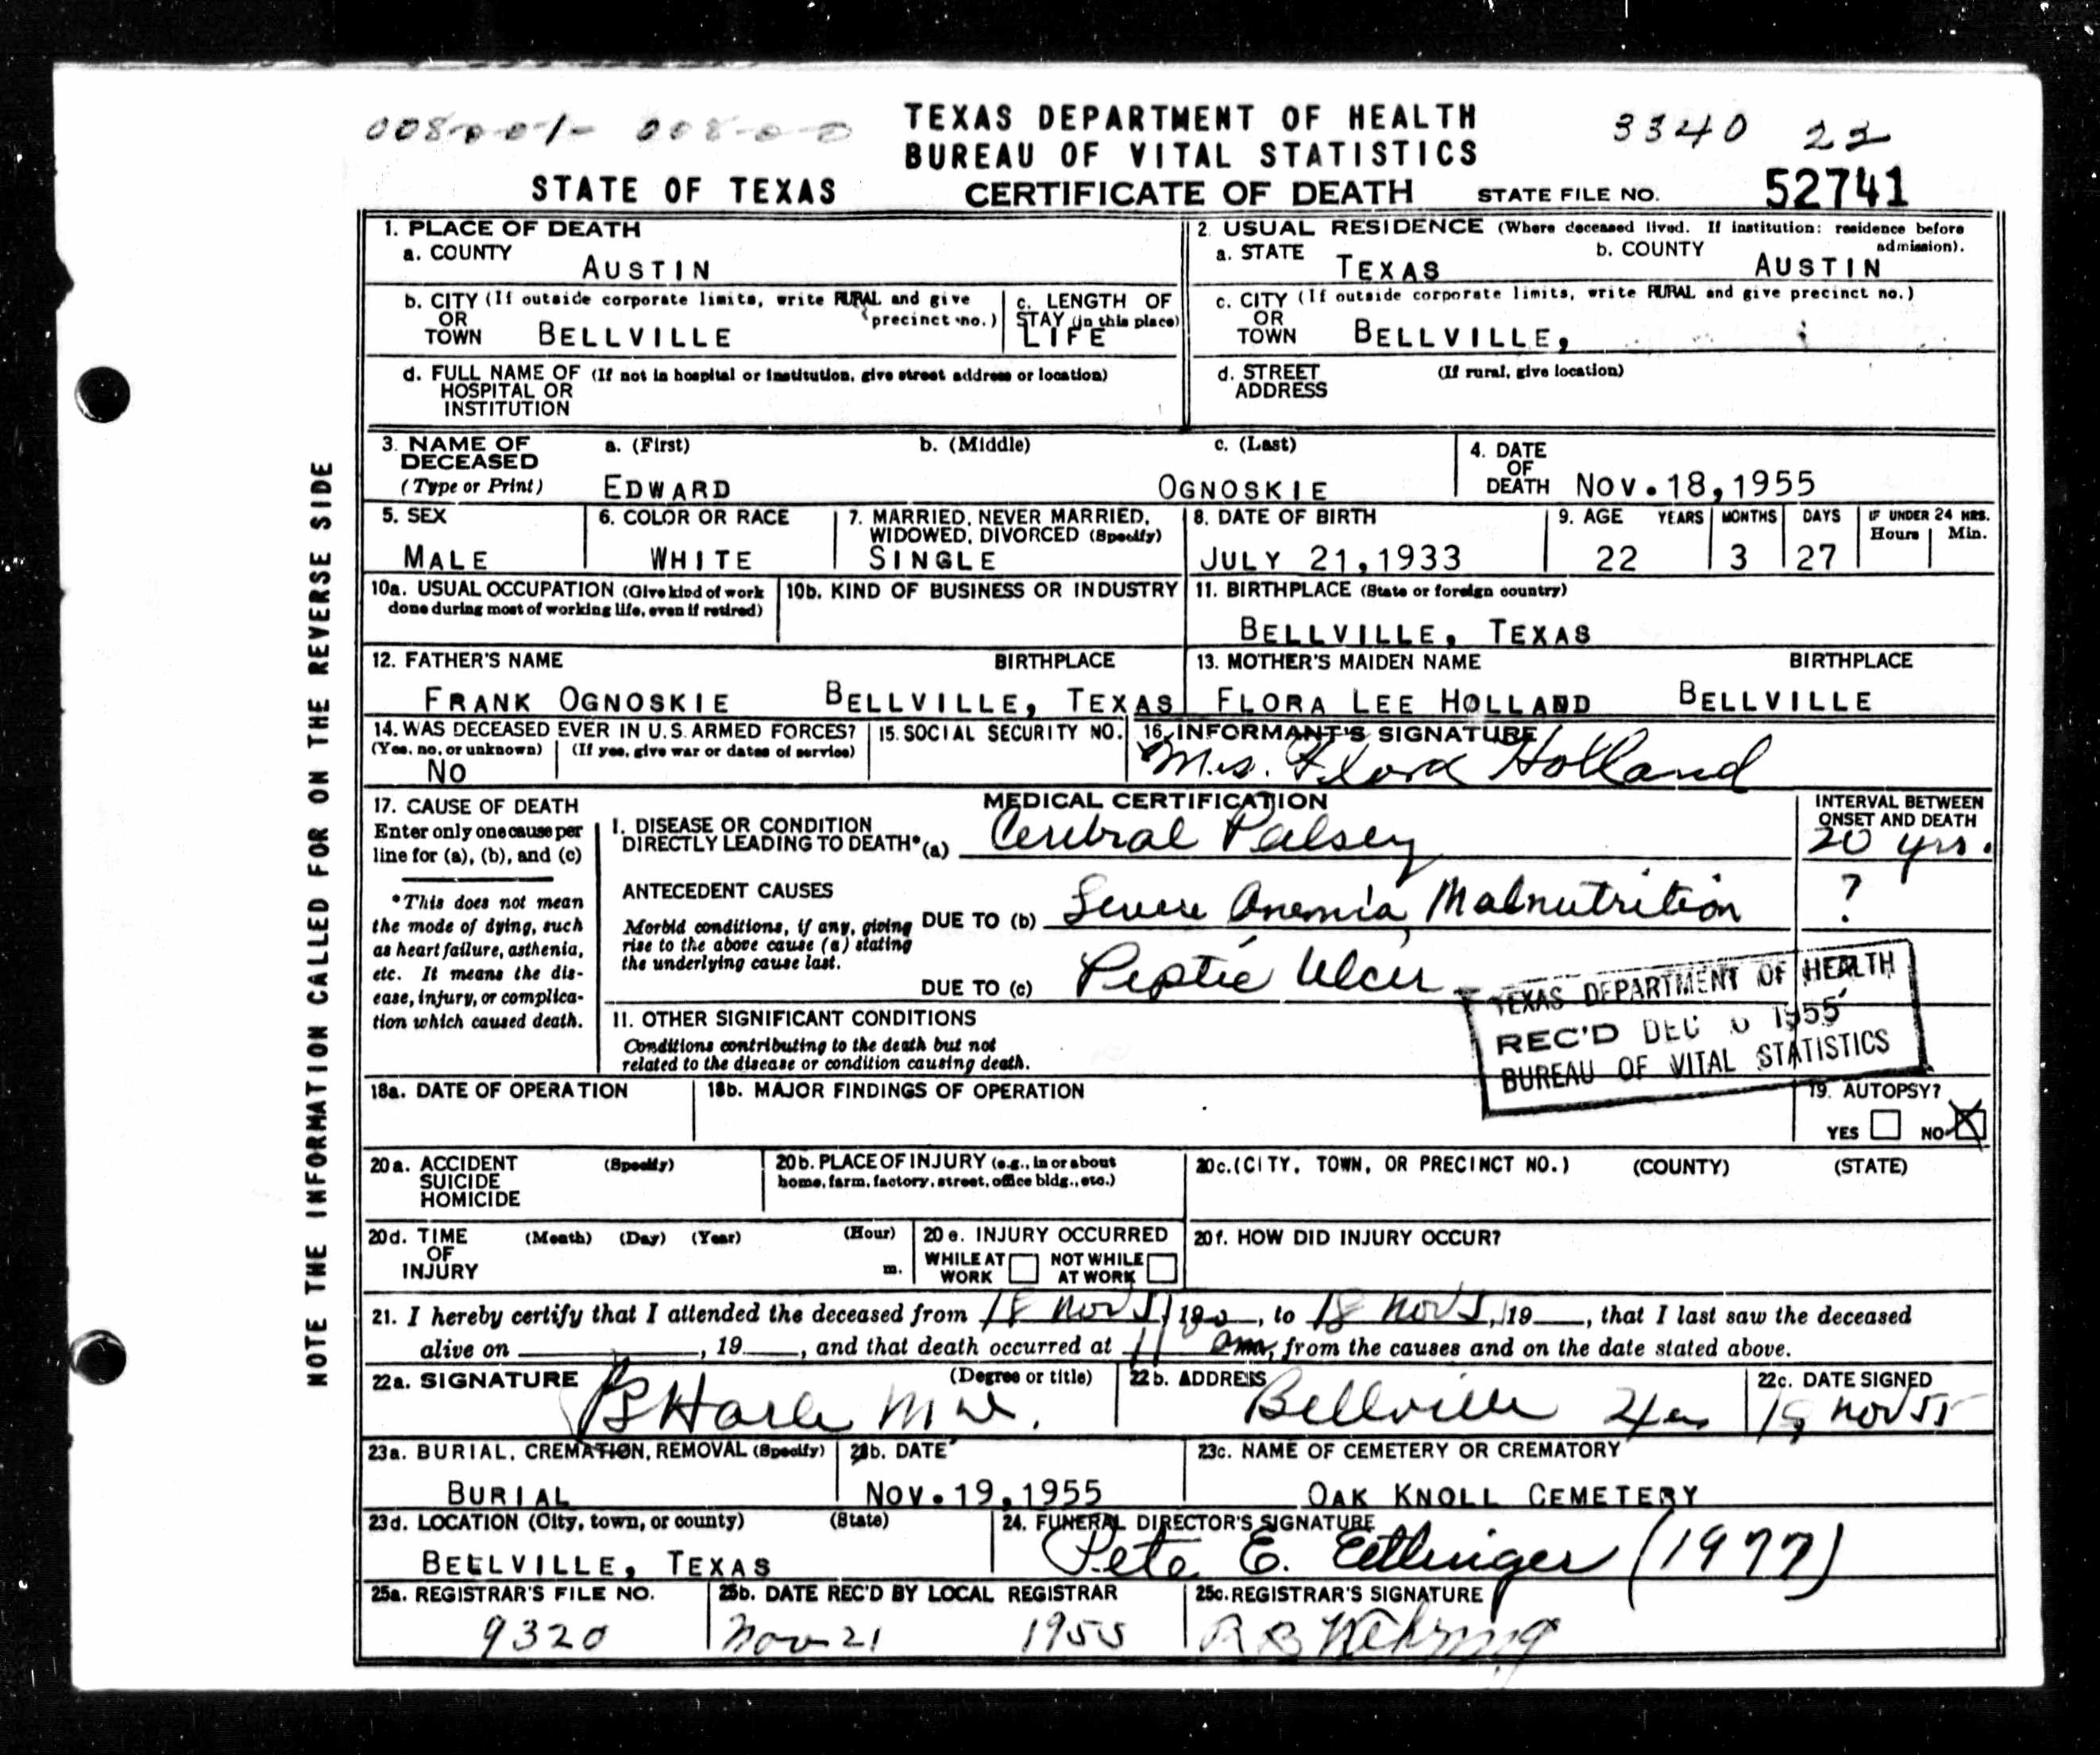 008-001- 008-00
TEXAS DEPARTMENT OF HEALTH
BUREAU OF VITAL STATISTICS
3340 22
STATE OF TEXAS CERTIFICATE OF DEATH STATE FILE NO. 52741
NOTE THE INFORMATION CALLED FOR ON THE REVERSE SIDE
1. PLACE OF DEATH
a. COUNTY
AUSTIN
2. USUAL RESIDENCE (Where deceased lived. If institution: residence before admission).
a. STATE TEXAS b. COUNTY AUSTIN
b. CITY (If outside corporate limits, write RURAL and give precinct no.)
OR
TOWN BELLVILLE
c. LENGTH OF
STAY (in this place)
LIFE
c. CITY (If outside corporate limits, write RURAL and give precinct no.)
OR
TOWN BELLVILLE,
d. FULL NAME OF (If not in hospital or institution, give street address or location)
HOSPITAL OR
INSTITUTION
d. STREET (If rural, give location)
ADDRESS
3. NAME OF a. (First) b. (Middle) c. (Last)
DECEASED
(Type or Print) EDWARD OGNOSKIE
4. DATE
OF
DEATH NOV.18,1955
5. SEX
MALE
6. COLOR OR RACE
WHITE
7. MARRIED, NEVER MARRIED,
WIDOWED, DIVORCED (Specify)
SINGLE
8. DATE OF BIRTH
JULY 21,1933
9. AGE YEARS MONTHS DAYS IF UNDER 24 HRS.
Hours Min.
22 3 27
10a. USUAL OCCUPATION (Give kind of work
done during most of working life, even if retired)
10b. KIND OF BUSINESS OR INDUSTRY
11. BIRTHPLACE (State or foreign country)
BELLVILLE, TEXAS
12. FATHER'S NAME BIRTHPLACE
FRANK OGNOSKIE BELLVILLE, TEXAS
13. MOTHER'S MAIDEN NAME BIRTHPLACE
FLORA LEE HOLLAND BELLVILLE
14. WAS DECEASED EVER IN U.S. ARMED FORCES?
(Yes, no, or unknown) (If yes, give war or dates of service)
NO
15. SOCIAL SECURITY NO.
16. INFORMANT'S SIGNATURE
Mrs. Flora Holland
17. CAUSE OF DEATH
Enter only one cause per
line for (a), (b), and (c)
*This does not mean
the mode of dying, such
as heart failure, asthenia,
etc. It means the dis-
ease, injury, or complica-
tion which caused death.
MEDICAL CERTIFICATION
INTERVAL BETWEEN
ONSET AND DEATH
I. DISEASE OR CONDITION
DIRECTLY LEADING TO DEATH* (a) Cerebral Palsey 20 yrs.
ANTECEDENT CAUSES
Morbid conditions, if any, giving
rise to the above cause (a) stating
the underlying cause last.
DUE TO (b) Severe Anemia, Malnutrition ?
DUE TO (c) Peptic Ulcer
II. OTHER SIGNIFICANT CONDITIONS
Conditions contributing to the death but not
related to the disease or condition causing death.
TEXAS DEPARTMENT OF HEALTH
REC'D DEC 6 1955
BUREAU OF VITAL STATISTICS
18a. DATE OF OPERATION
18b. MAJOR FINDINGS OF OPERATION
19. AUTOPSY?
YES NO X
20a. ACCIDENT (Specify)
SUICIDE
HOMICIDE
20b. PLACE OF INJURY (e.g., in or about
home, farm, factory, street, office bldg., etc.)
20c. (CITY, TOWN, OR PRECINCT NO.) (COUNTY) (STATE)
20d. TIME (Month) (Day) (Year) (Hour)
OF
INJURY m.
20e. INJURY OCCURRED
WHILE AT WORK NOT WHILE AT WORK
20f. HOW DID INJURY OCCUR?
21. I hereby certify that I attended the deceased from 18 Nov 19, to 18 Nov 19, that I last saw the deceased
alive on , 19 , and that death occurred at 11 am, from the causes and on the date stated above.
22a. SIGNATURE (Degree or title)
M.D.
22b. ADDRESS
Bellville
22c. DATE SIGNED
Nov 55
23a. BURIAL, CREMATION, REMOVAL (Specify)
BURIAL
23b. DATE
NOV.19,1955
23c. NAME OF CEMETERY OR CREMATORY
OAK KNOLL CEMETERY
23d. LOCATION (City, town, or county) (State)
BELLVILLE, TEXAS
24. FUNERAL DIRECTOR'S SIGNATURE
Pete E. Ettlinger (1977)
25a. REGISTRAR'S FILE NO.
9320
25b. DATE REC'D BY LOCAL REGISTRAR
Nov 21 1955
25c. REGISTRAR'S SIGNATURE